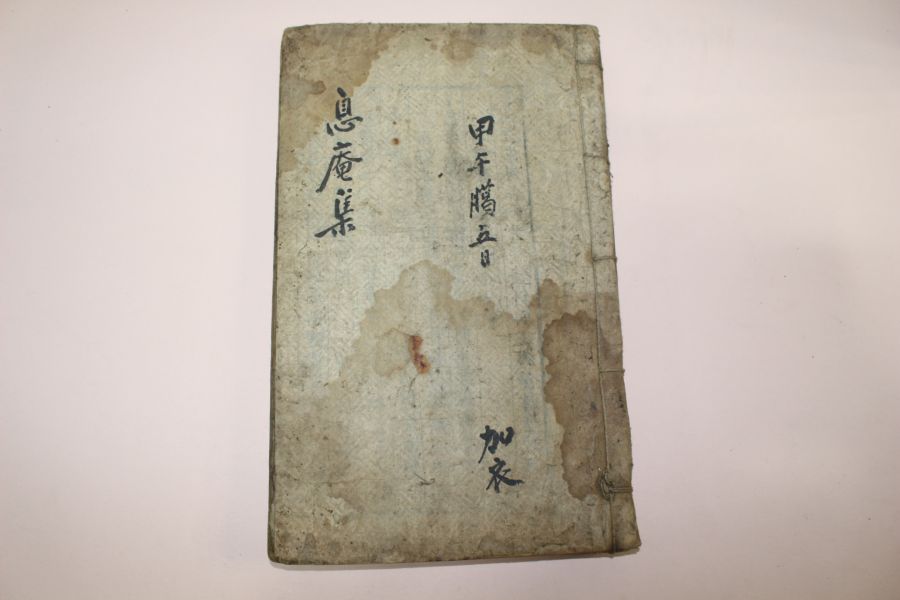 甲午臈五日
加衣
息庵集